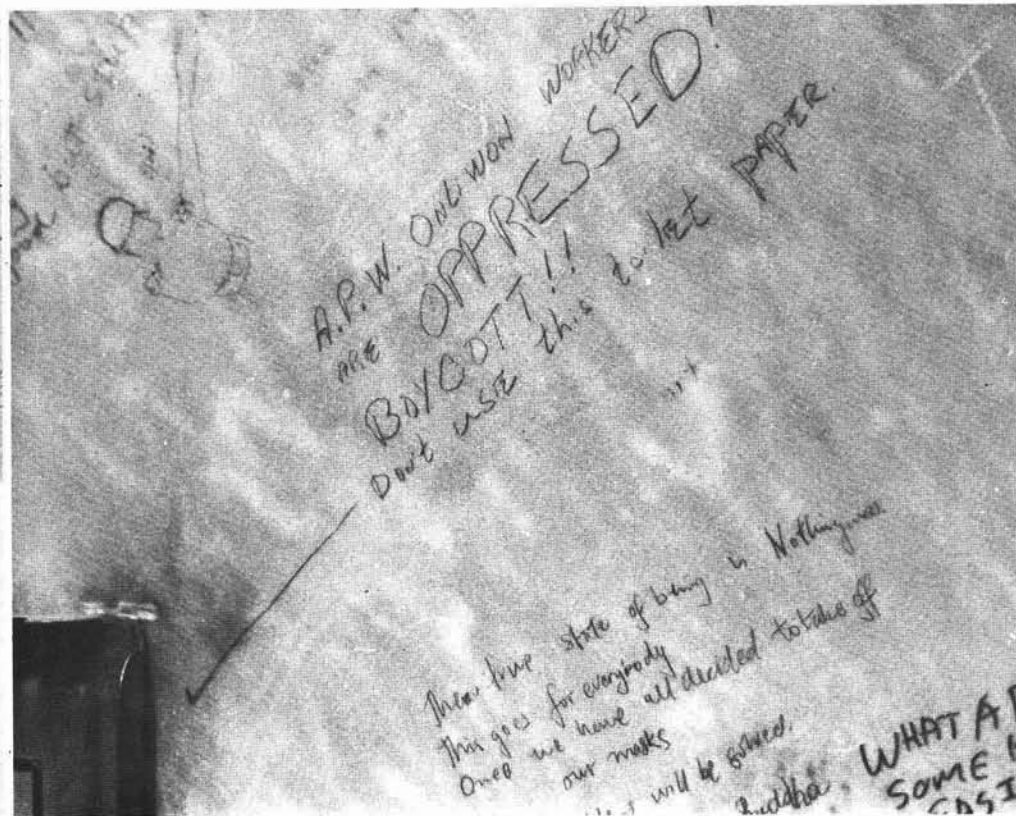 A.P.W. ONLIWON WORKERS
ARE OPPRESSED!
BOYCOTT!!
DON'T USE this toilet PAPER.
true state of being is Nothingness
This goes for everybody
Once we have all decided to take off
our masks
will be solved.
Buddha
WHAT A
SOME